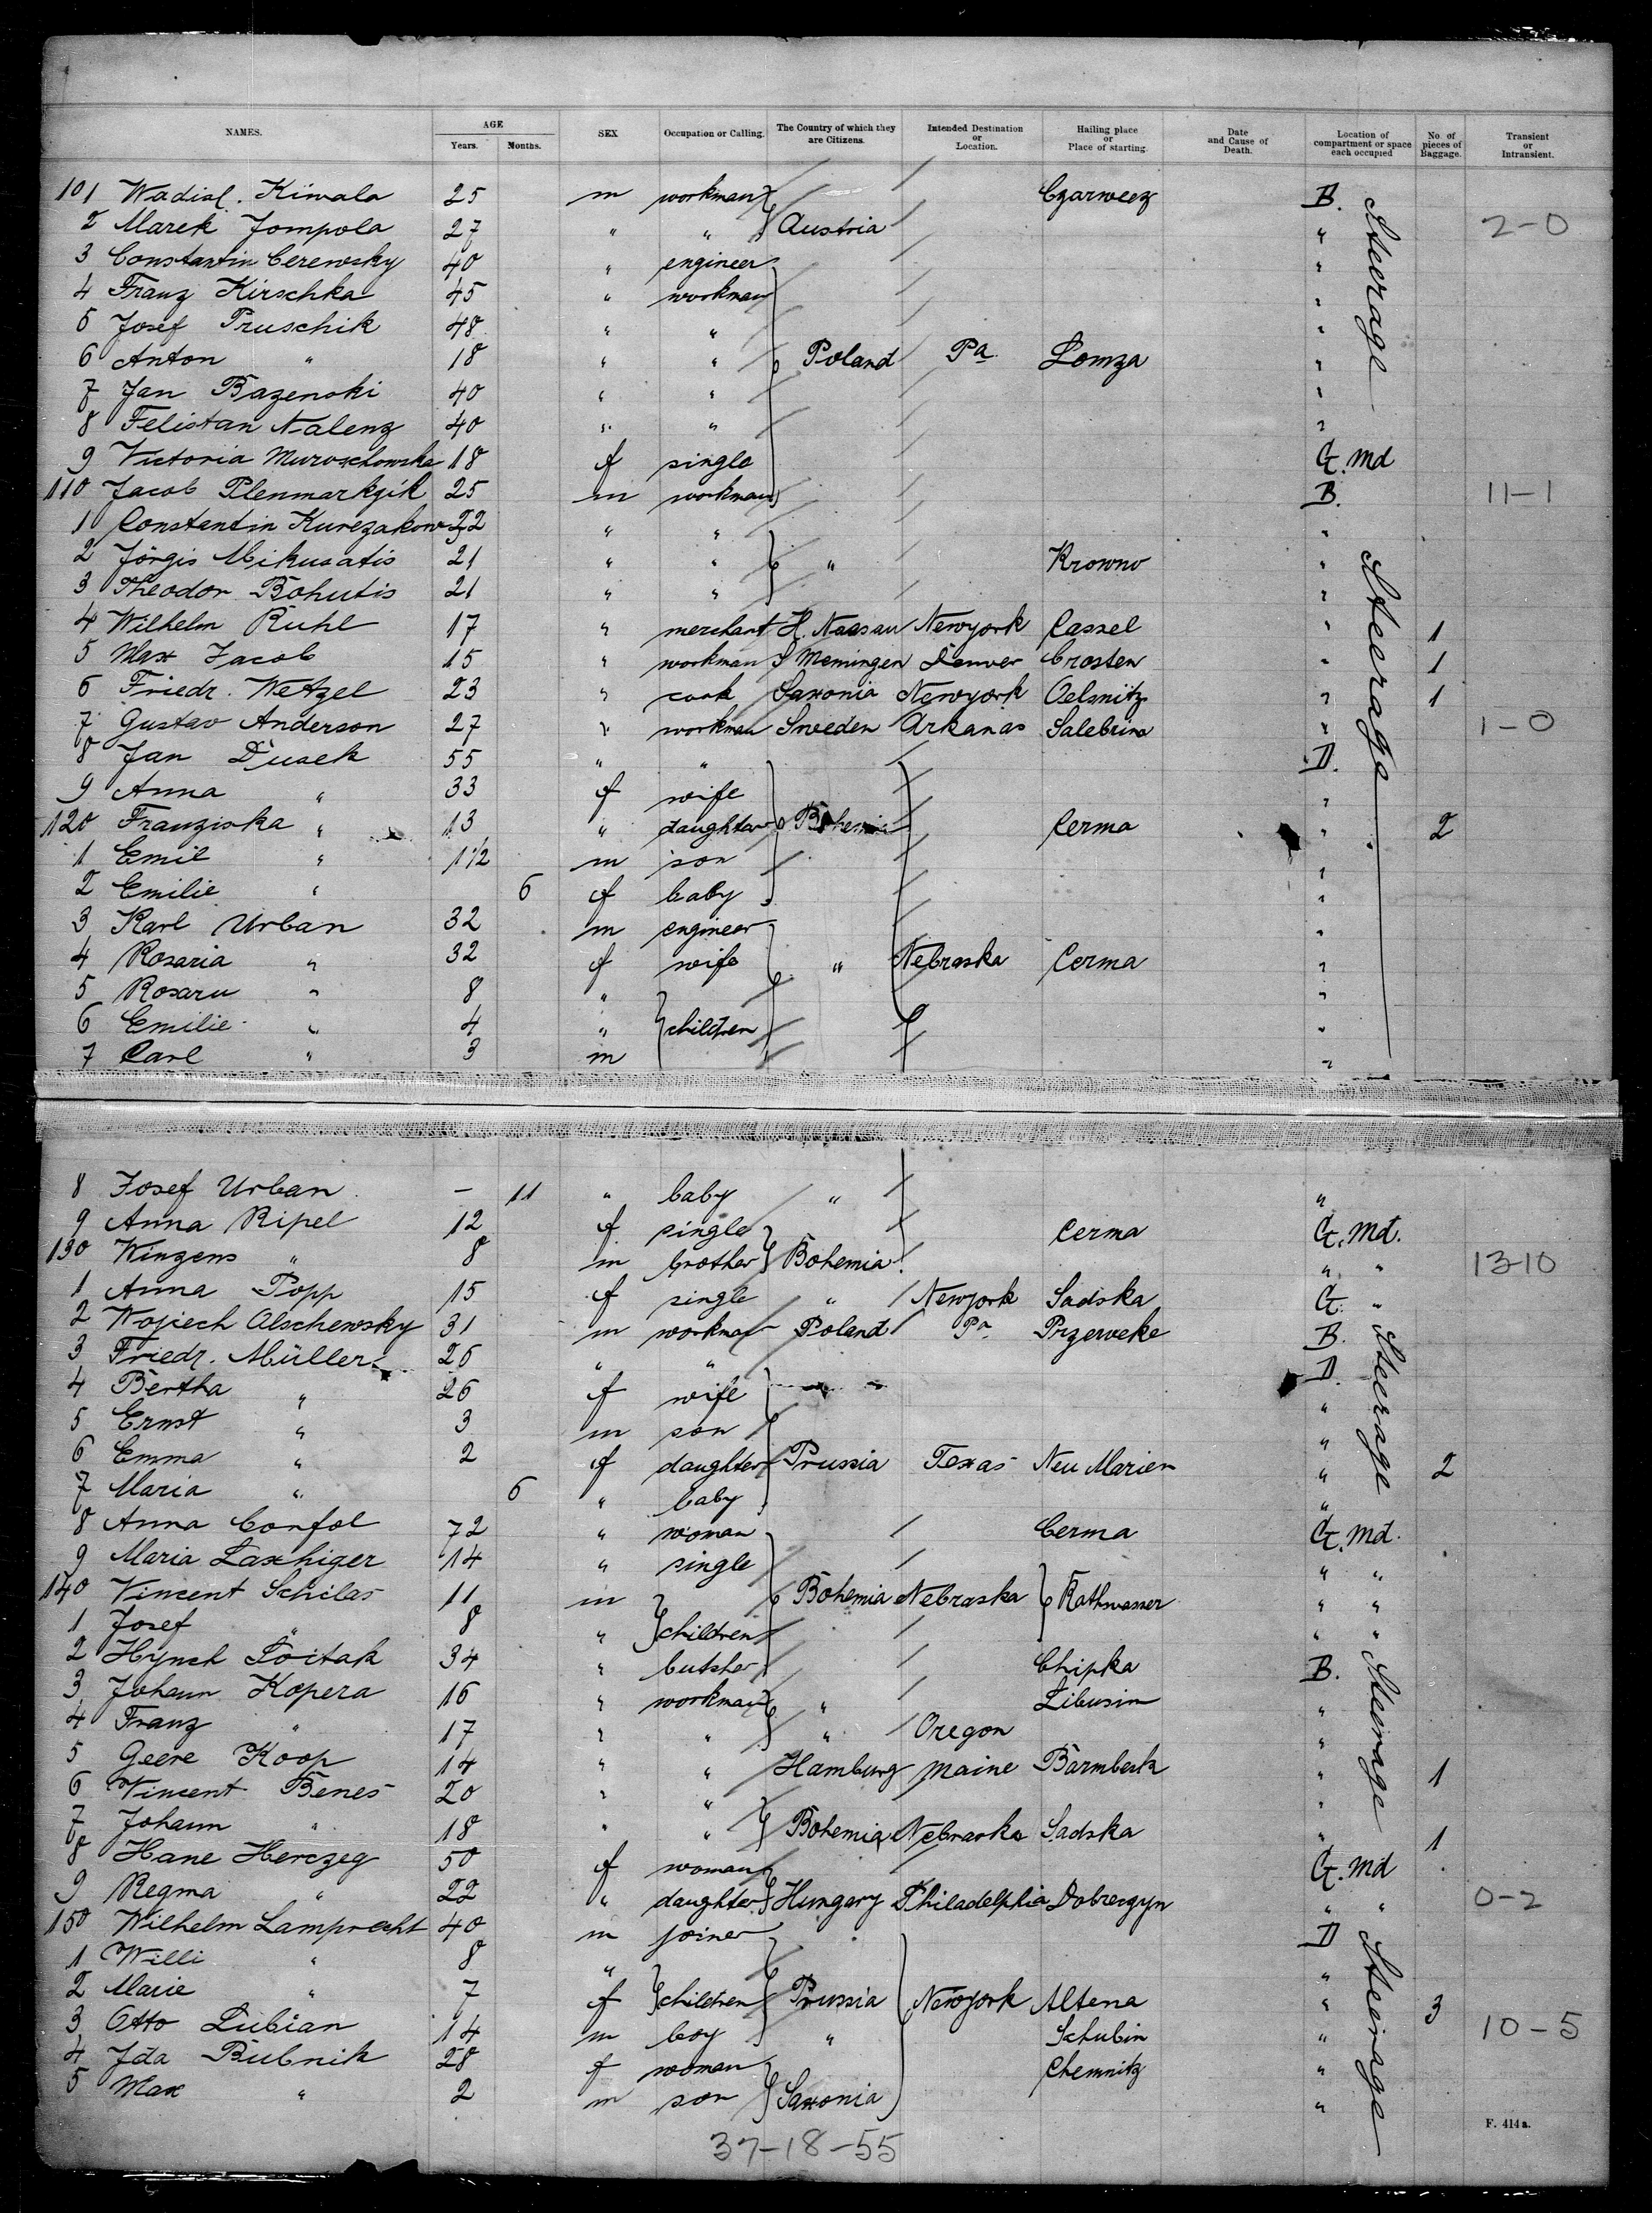 NAMES. AGE Years. Months. SEX Occupation or Calling. The Country of which they are Citizens. Intended Destination or Location. Hailing place or Place of starting. Date and Cause of Death. Location of compartment or space each occupied No. of pieces of Baggage. Transient or Intransient.
101 Wadisl. Kiwala 25 m workman Czarweez B.
2 Marek Jompola 27 " " Austria " 2-0
3 Constantin Cerewsky 40 " engineer "
4 Franz Kirschka 45 " workman "
5 Josef Pruschik 48 " " "
6 Anton " 18 " " Poland Pa. Lomza "
7 Jan Bazenski 40 " " "
8 Felistan Nalenz 40 " " "
9 Victoria Muroschowska 18 f single G. Md
110 Jacob Plenmarkgik 25 m workman B. 11-1
1 Constantin Kurezakow 22 " " "
2 Jörgis Mikusatis 21 " " " Krowno "
3 Theodor Bohutis 21 " " "
4 Wilhelm Ruhl 17 " merchant H. Nassau Newyork Cassel " 1
5 Max Jacob 15 " workman S Memingen Denver Crosten " 1
6 Friedr. Wetzel 23 " cook Saxonia Newyork Oelsnitz " 1
7 Gustav Anderson 27 " workman Sweden Arkanas Salebrina " 1-0
8 Jan Dusek 55 " " D.
9 Anna " 33 f wife "
120 Franziska " 13 " daughter Bohemia Cerma " 2
1 Emil " 1 1/2 m son "
2 Emilie " 6 f baby "
3 Karl Urban 32 m engineer "
4 Rosaria " 32 f wife " Nebraska Cerma "
5 Rosaru " 8 " "
6 Emilie " 4 " children "
7 Carl " 3 m "
Steerage
Steerage
8 Josef Urban - 11 " baby " "
9 Anna Ripel 12 f single Cerma G. Md.
130 Winzens " 8 m brother Bohemia " " 13-10
1 Anna Popp 15 f single " Newyork Sadska G. "
2 Wojiech Olschewsky 31 m workman Poland Pa Przerweke B.
3 Friedr. Müller 26 " " D.
4 Bertha " 26 f wife "
5 Ernst " 3 m son "
6 Emma " 2 f daughter Prussia Texas Neu Marien " 2
7 Maria " 6 " baby "
8 Anna Confol 72 " woman Cerma G. Md.
9 Maria Laxhiger 14 " single " "
140 Vincent Schilas 11 m Bohemia Nebraska Rothwasser " "
1 Josef " 8 " children " "
2 Hynek Loitak 34 " butcher Chipka B.
3 Johann Kopera 16 " workman " Libusin "
4 Franz " 17 " " " Oregon "
5 Geere Koop 14 " " Hamburg Maine Barmbeck " 1
6 Vincent Benes 20 " " "
7 Johann " 18 " " Bohemia Nebraska Sadska " 1
8 Hane Herczeg 50 f woman G. Md
9 Regma " 22 " daughter Hungary Philadelphia Dobrezgyn " " 0-2
150 Wilhelm Lamprecht 40 m joiner D
1 Willi " 8 " "
2 Marie " 7 f children Prussia Newyork Altena " 3
3 Otto Lubian 14 m boy " Schubin " 10-5
4 Ida Bubnik 28 f woman Chemnitz "
5 Max " 2 m son Saxonia "
Steerage
Steerage
Steerage
F. 414 a.
37-18-55